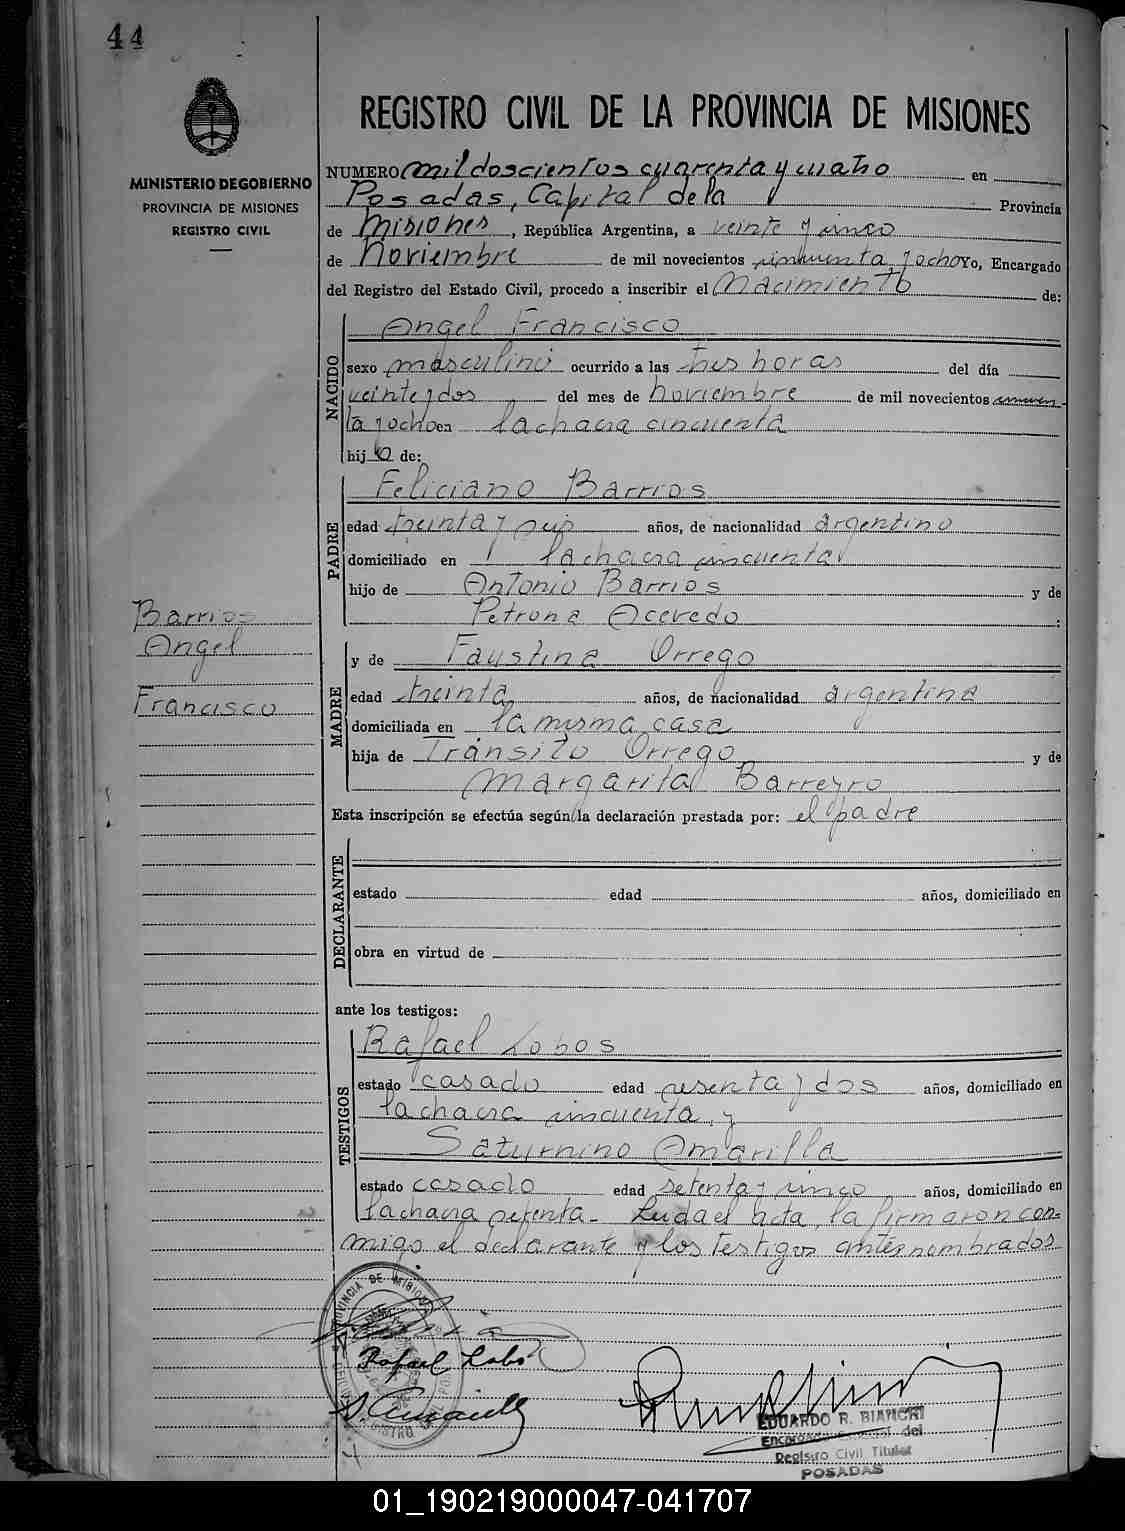 44
MINISTERIO DE GOBIERNO
PROVINCIA DE MISIONES
REGISTRO CIVIL
REGISTRO CIVIL DE LA PROVINCIA DE MISIONES
NUMERO mil doscientos cuarenta y cuatro en
Posadas, Capital de la Provincia
de Misiones, República Argentina, a veinte y cinco
de Noviembre de mil novecientos cincuenta y ocho Yo, Encargado
del Registro del Estado Civil, procedo a inscribir el Nacimiento de:
NACIDO
Angel Francisco
sexo masculino ocurrido a las tres horas del día
veinte y dos del mes de Noviembre de mil novecientos cincuen-
ta y ocho en la chacra cincuenta
hijo de:
PADRE
Feliciano Barrios
edad treinta y seis años, de nacionalidad argentino
domiciliado en la chacra cincuenta
hijo de Antonio Barrios y de
Petrona Acevedo:
Barrios
Angel
Francisco
MADRE
y de Faustina Orrego
edad treinta años, de nacionalidad argentina
domiciliada en la misma casa
hija de Tránsito Orrego y de
Margarita Barreyro
Esta inscripción se efectúa según la declaración prestada por: el padre
DECLARANTE
estado edad años, domiciliado en
obra en virtud de
ante los testigos:
TESTIGOS
Rafael Lobos
estado casado edad sesenta y dos años, domiciliado en
la chacra cincuenta, y
Saturnino Amarilla
estado casado edad setenta y cinco años, domiciliado en
la chacra setenta. Leída el acta, la firmaron con-
migo el declarante y los testigos antes nombrados
PROVINCIA DE MISIONES
Rafael Lobo
S. Amarilla
EDUARDO R. BIANCHI
Encargado del
Registro Civil Titular
POSADAS
01_190219000047-041707